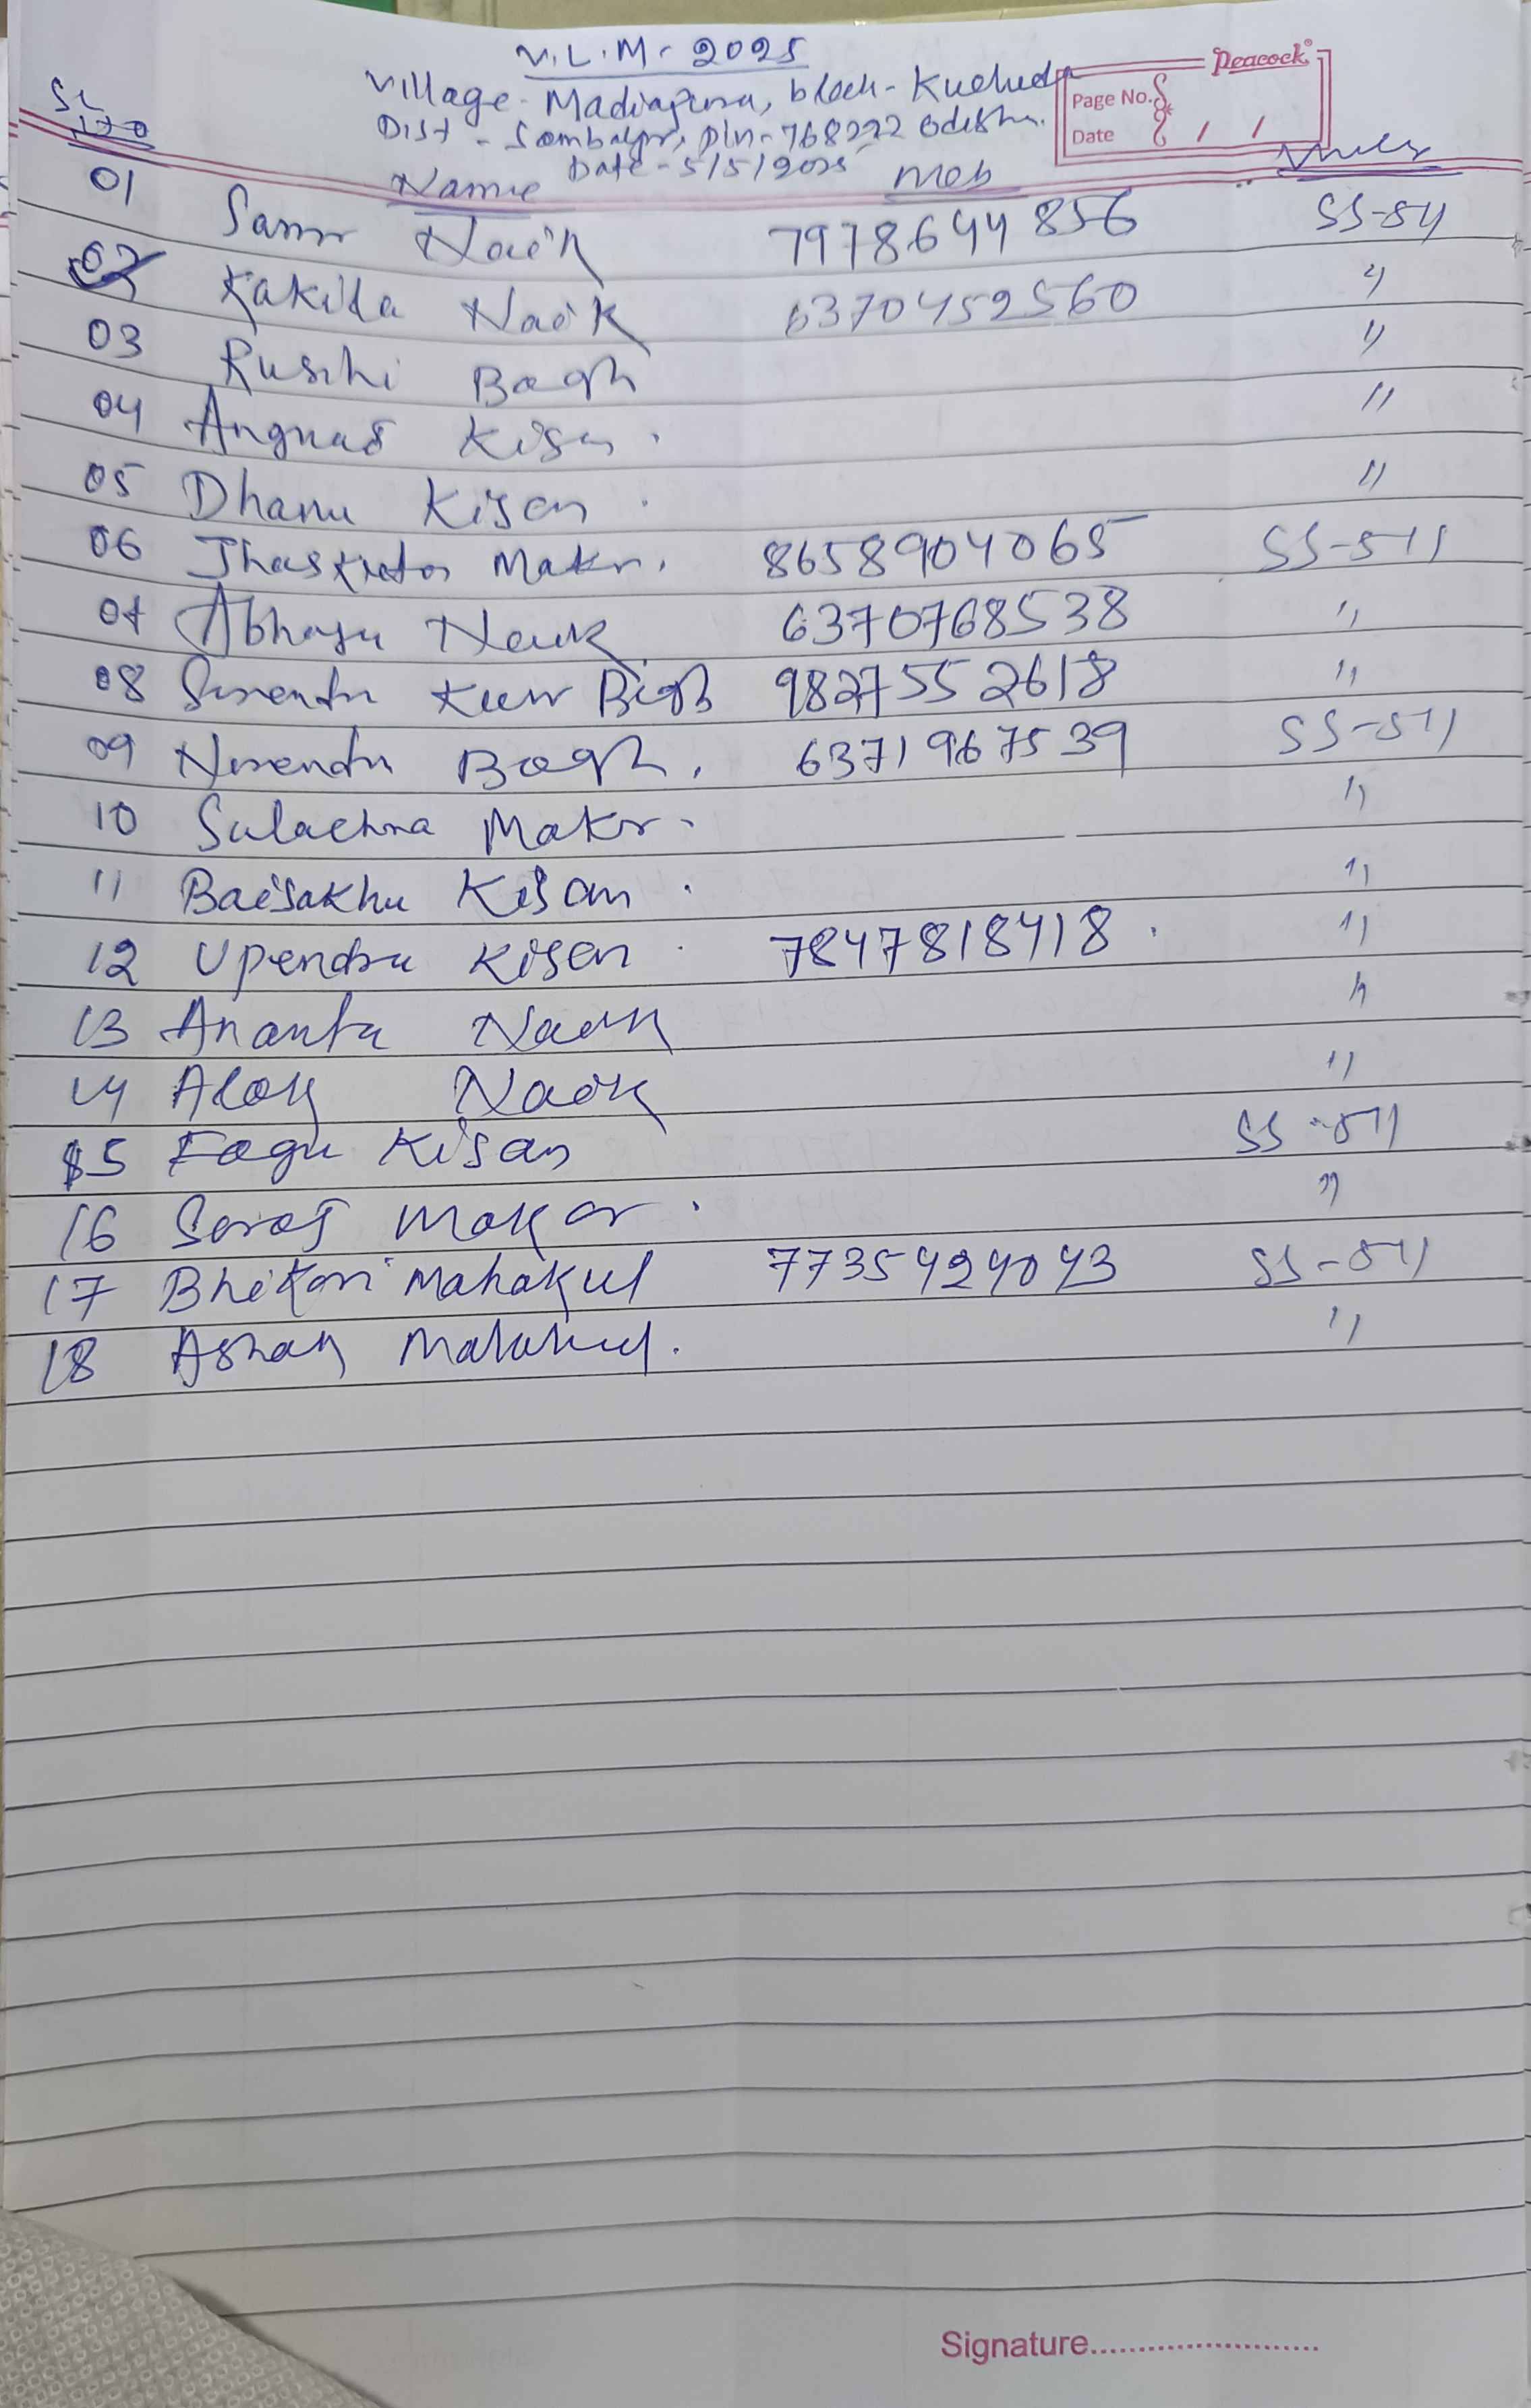 V.L.M - 2025
Peacock
Village - Madiapura, block - Kuchinda
Page No.
Dist - Sambalpur, Pin - 768222 Odisha.
Date / /
Date - 5/5/2025
SL No Name Mob
01 Samir Naik 7978644856 SS-54
02 Kakila Naik 6370452560 "
03 Rushi Bagh "
04 Angnad Kisan. "
05 Dhanu Kisan. "
06 Jhasketan Makar. 8658904065 SS-511
07 Abhaya Naik 6370768538 "
08 Surendra Kumar Bagh 9827552618 "
09 Narendra Bagh. 6371967539 SS-511
10 Sulachna Makar. "
11 Baisakhu Kisan. "
12 Upendra Kisan. 7847818418. "
13 Ananta Naik "
14 Alok Naik "
15 Fagu Kisan SS-511
16 Saroj Makar. "
17 Bhikari Mahakul 7735424043 SS-511
18 Ashok Mahakul. "
Signature........................